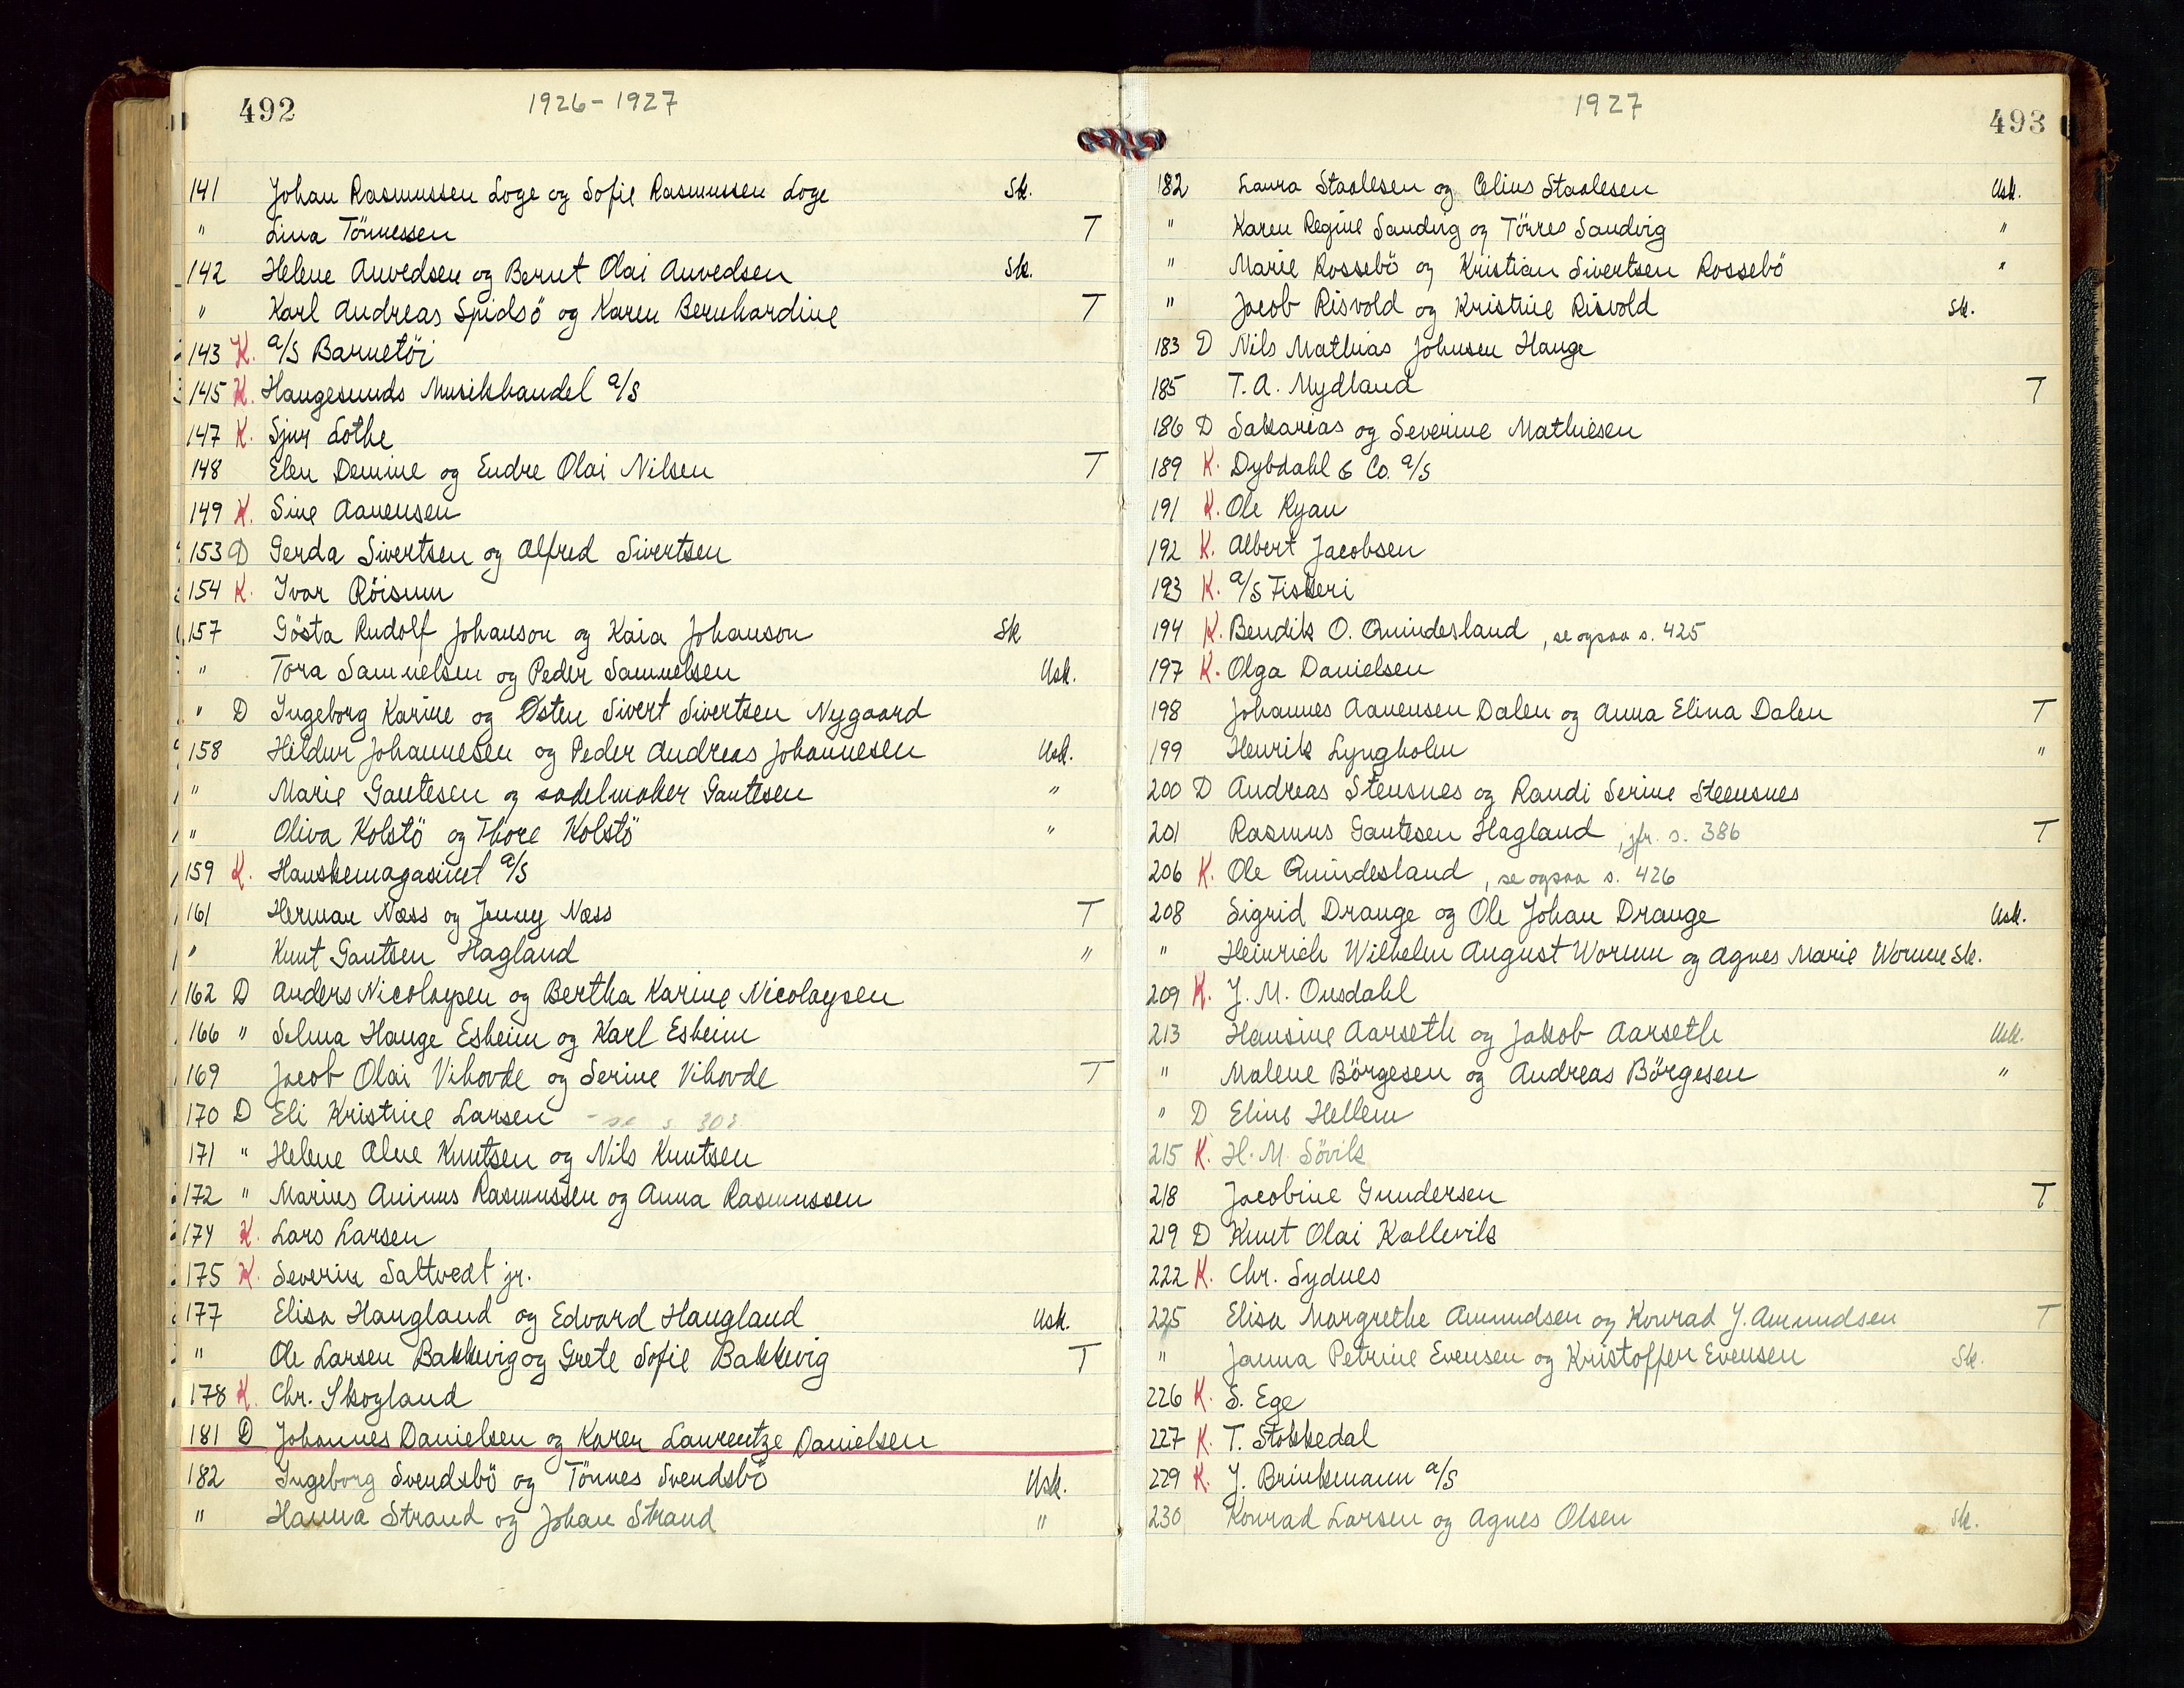 492
1926-1927
141 Johan Rasmussen Loge og Sofie Rasmussen Loge Sk.
" Lina Tönnessen T
142 Helene Anvedsen og Bernt Olai Anvedsen Sk.
" Karl Andreas Spidsö og Karen Bernhardine T
143 K. a/s Barnetöi
145 K. Haugesunds Musikhandel a/s
147 K. Sjur Lothe
148 Elen Demine og Endre Olai Nilsen T
149 K. Sine Aanensen
153 D Gerda Sivertsen og Alfred Sivertsen
154 K. Ivar Röisum
157 Gösta Rudolf Johanson og Kaia Johanson Sk
" Tora Samuelsen og Peder Samuelsen Usk.
" D Ingeborg Karine og Østen Sivert Sivertsen Nygaard
158 Hildur Johannesen og Peder Andreas Johannesen Usk.
" Marie Gautesen og sadelmaker Gautesen "
" Oliva Kolstö og Thore Kolstö "
159 K. Hanskemagasinet a/s
161 Herman Næss og Jenny Næss T
" Knut Gautsen Hagland "
162 D Anders Nicolaysen og Bertha Karine Nicolaysen
166 " Selma Hauge Esheim og Karl Esheim
169 Jacob Olai Vihovde og Serine Vihovde T
170 D Eli Kristine Larsen - se s. 303
171 " Helene Alne Knutsen og Nils Knutsen
172 " Marius Aninus Rasmussen og Anna Rasmussen
174 K. Lars Larsen
175 K. Severin Saltvedt jr.
177 Elisa Haugland og Edvard Haugland Usk.
" Ole Larsen Bakkevig og Grete Sofie Bakkevig T
178 K. Chr. Skogland
181 D Johannes Danielsen og Karen Laurentze Danielsen
182 Ingeborg Svendsbö og Tönnes Svendsbö Usk.
" Hanna Strand og Johan Strand "
1927
493
182 Laura Staalesen og Celius Staalesen Usk.
" Karen Regine Sandvig og Törres Sandvig "
" Marie Rossebö og Kristian Sivertsen Rossebö "
" Jacob Risvold og Kristine Risvold Sk.
183 D Nils Mathias Johnsen Hauge
185 T. A. Mydland T
186 D Sakarias og Severine Mathiesen
189 K. Dybdahl & Co. a/s
191 K. Ole Ryan
192 K. Albert Jacobsen
193 K. a/s Fiskeri
194 K. Bendik O. Quindesland, se ogsaa s. 425
197 K. Olga Danielsen
198 Johannes Aanensen Dalen og Anna Elina Dalen T
199 Henrik Lyngholm "
200 D Andreas Stensnes og Randi Serine Steensnes
201 Rasmus Gautesen Hagland, jfr. s. 386 T
206 K. Ole Quindesland, se ogsaa s. 426
208 Sigrid Drange og Ole Johan Drange Usk.
" Heinrich Wilhelm August Worum og Agnes Marie Worum Sk.
209 K. J. M. Onsdahl
213 Hansine Aarseth og Jakob Aarseth Usk.
" Malene Börgesen og Andreas Börgesen "
" D Eline Hellem
215 K. H. M. Sövik
218 Jacobine Gundersen T
219 D Knut Olai Kallevik
222 K. Chr. Sydnes
225 Elisa Margrethe Amundsen og Konrad J. Amundsen T
" Janna Petrine Evensen og Kristoffer Evensen Sk.
226 K. S. Ege
227 K. T. Stokkedal
229 K. J. Brinkmann a/s
230 Konrad Larsen og Agnes Olsen Sk.